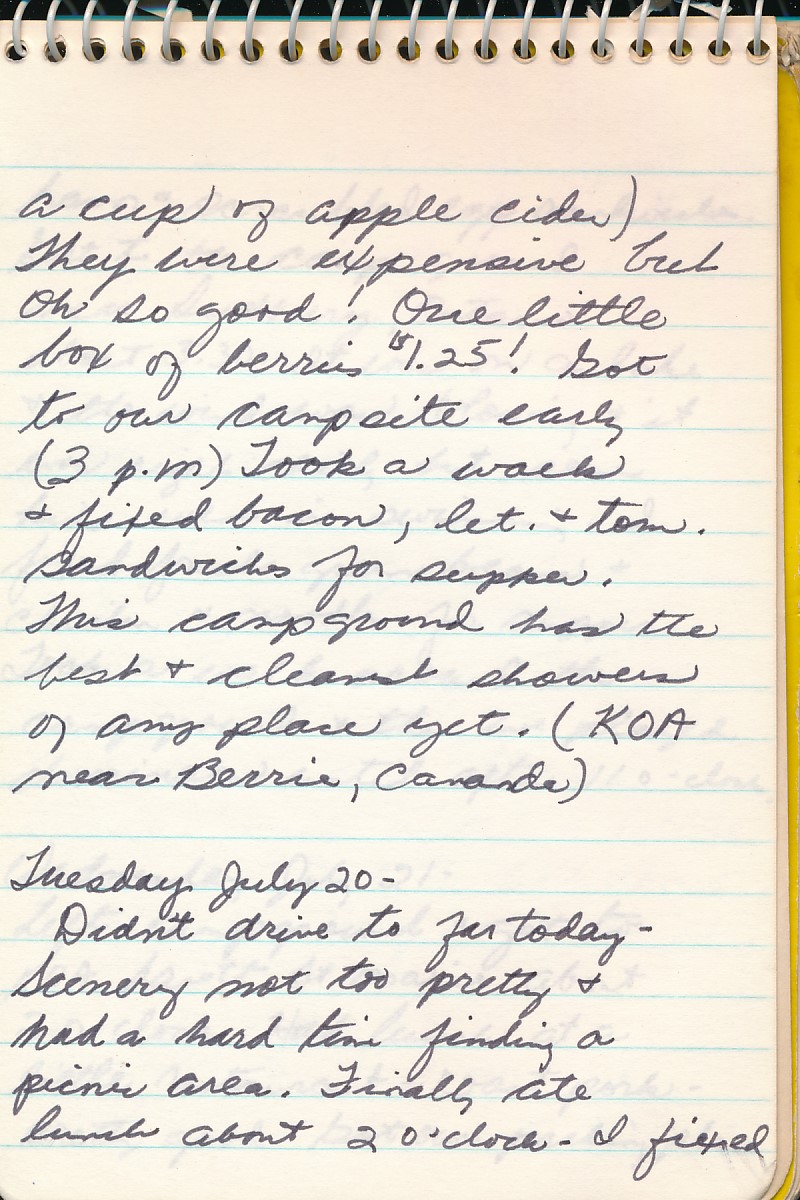 a cup of apple cider)
They were expensive but
Oh so good! One little
box of berries $1.25! Got
to our campsite early
(3 p.m) Took a walk
& fixed bacon, let. & tom.
sandwiches for supper.
This campground has the
best & cleanest showers
of any place yet. (KOA
near Berrie, Cananda)
Tuesday July 20-
Didn't drive to far today-
Scenery not too pretty &
had a hard time finding a
picnic area. Finally ate
lunch about 2 o'clock - I fixed